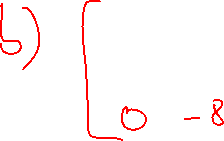 b) [
0 -8